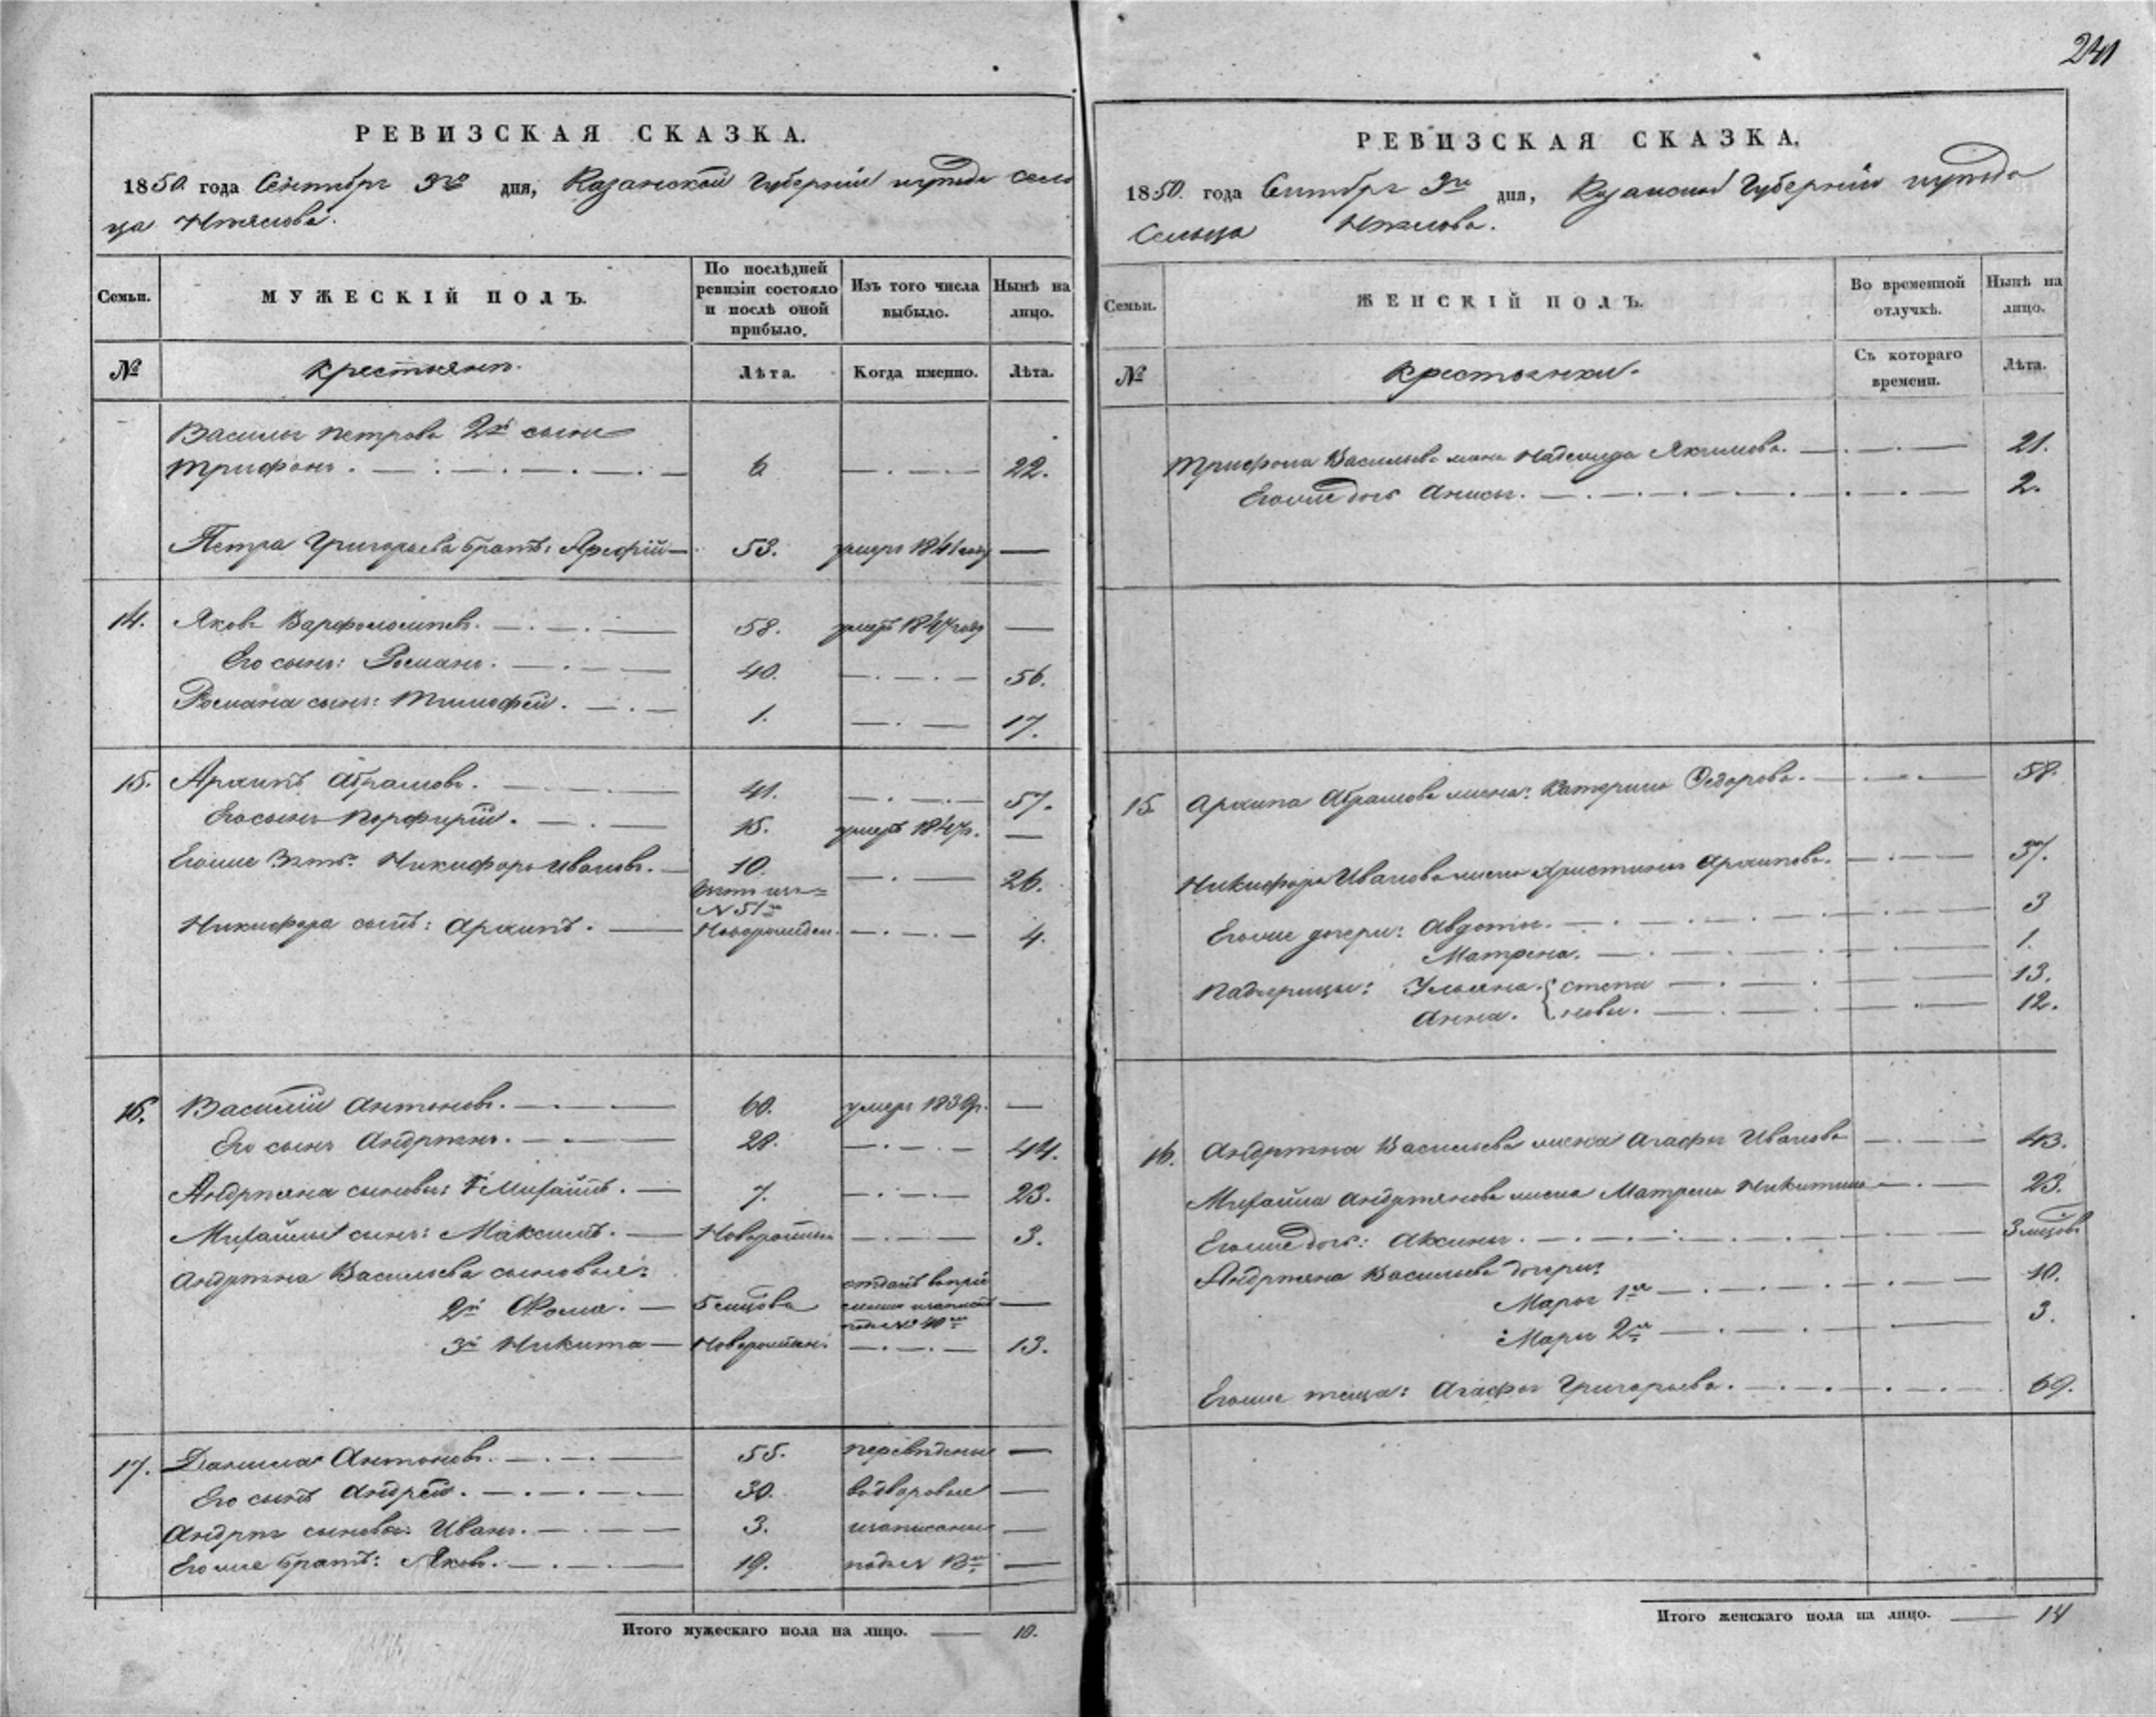 241
РЕВИЗСКАЯ СКАЗКА.
1850. года Сентября 3го дня, Казанской Губернии и уезда сель
ца Нтялова.
Семьи. МУЖЕСКІЙ ПОЛЪ. По послѣдней ревизіи состояло и послѣ оной прибыло. Изъ того числа выбыло. Нынѣ на лицо.
№ Крестьянъ. Лѣта. Когда именно. Лѣта.
Василья Петрова 2й сынъ
Трифонъ. 6 22.
Петра Григорьева братъ: Арефій 53. умеръ 1841 году
14. Яковъ Варфоломеевъ. 58. умеръ 1847 году
Его сынъ: Романъ. 40. 56.
Романа сынъ: Тимофей. 1. 17.
15. Архипъ Абрамовъ. 41. 57.
Его сынъ Порфирій. 15. умеръ 1847г.
Егоже Зять: Никифоръ Ивановъ. 10. 26.
N 51го
Никифора сынъ: Архипъ. Новорожден. 4.
16. Василій Антоновъ. 60. умеръ 1839г.
Его сынъ Андреянъ. 28. 44.
Андреяна сыновья: 1й Михайлъ. 7. 23.
Михайлы сынъ: Максимъ. Новорожден 3.
Андреяна Васильева сыновья:
2й Фома. 5 мѣсцова отданъ въ пріемыши и написанъ подъ № 40м
3й Никита Новорожден. 13.
17. Данила Антоновъ. 55. переведены
Его сынъ Андрей. 30. в дворовые
Андрея сыновья: Иванъ. 3. и написаны
Егоже братъ: Яковъ. 19. подъ N
Итого мужескаго пола на лицо. 10.
РЕВИЗСКАЯ СКАЗКА.
1850. года Сентября 3го дня, Казанской Губернии и уезда
Сельца Нтялова.
Семьи. ЖЕНСКІЙ ПОЛЪ. Во временной отлучкѣ. Нынѣ на лицо.
№ Крестьянки. Съ котораго времени. Лѣта.
Трифона Васильева жена Надежда Якимова. 21.
Егоже дочь Анисья. 2.
15. Архипа Абрамова жена: Катерина Федорова. 58.
Никифора Иванова жена Христинья Архипова. 37.
Егоже дочери: Авдотья. 3
Матрена. 1.
Падчерицы: Ульяна. { степа 13.
Анна. { новы. 12.
16. Андреяна Васильева жена Агафья Иванова 43.
Михайла Андреянова жена Матрена Никитина 23.
Егоже дочь: Аксинья. 3 мѣсцовъ
Андреяна Васильева дочери:
Марья 1я 10.
Марья 2я 3.
Егоже теща: Агафья Григорьева. 69.
Итого женскаго пола на лицо. 14